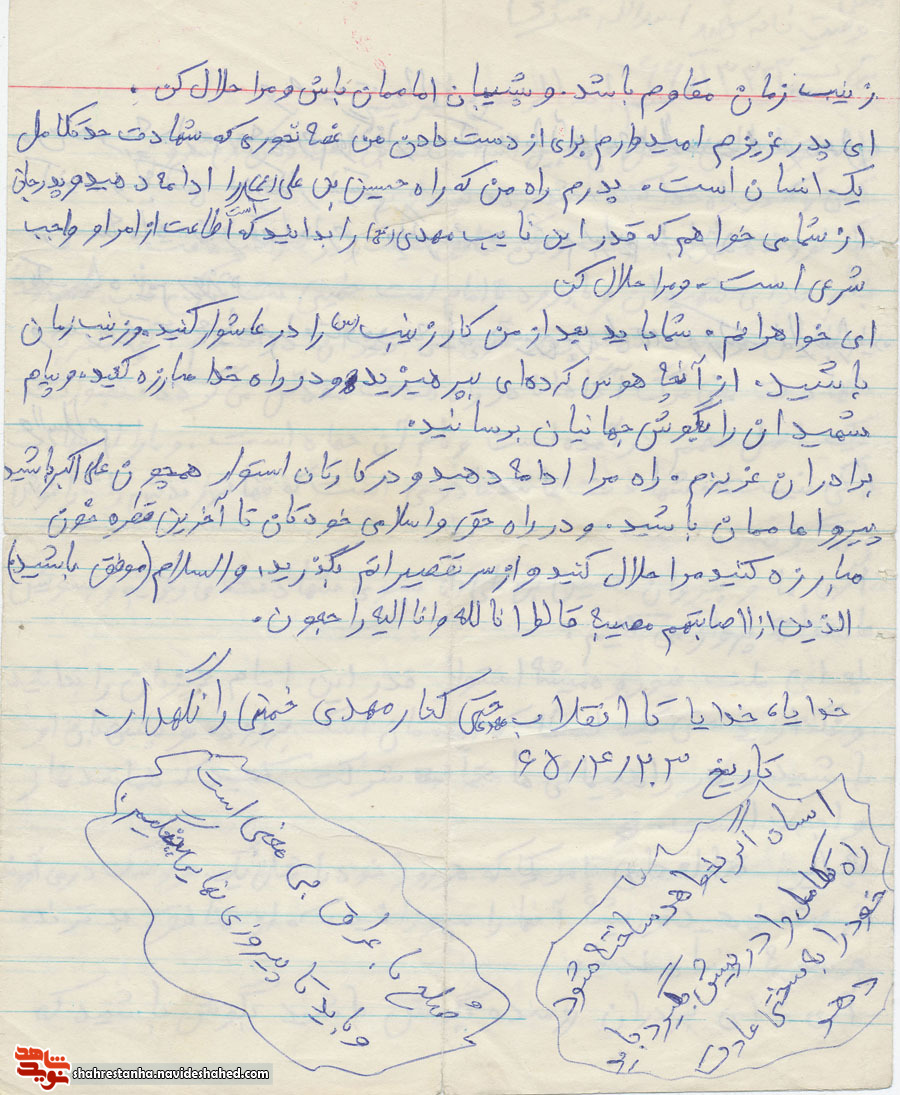 زینب زمان مقاوم باشد. و پشیبان اماممان باش و مرا حلال کن.
ای پدر عزیزم امیدوارم برای از دست دادن من غصه نخوری که شهادت حد تکامل
یک انسان است. پدرم راه من که راه حسین بن علی (ع) را ادامه دهید و پدر جان
از شما می خواهم که قدر این نایب مهدی (عج) را بدانید که اطاعت از امر او واجب
شرعی است. و مرا حلال کن
ای خواهرانم. شما باید بعد از من کار زینب (س) را در عاشورا کنید. و زینب زمان
باشید. از آنچه هوس کرده‌ای بپرهیزید و در راه خدا مبارزه کنید. و پیام
شهیدان را بگوش جهانیان برسانید.
برادران عزیزم. راه مرا ادامه دهید و در کارتان استوار همچون علی اکبر باشید
پیرو اماممان باشید. و در راه حق و اسلامی خودتان تا آخرین قطره خون
مبارزه کنید مرا حلال کنید و از سر تقصیراتم بگذرید. والسلام (موفق باشید)
الذین اذا اصابتهم مصیبه قالوا انا لله و انا الیه راجعون.
خدایا، خدایا تا انقلاب مهدی حتی کنار مهدی خمینی را نگهدار.
تاریخ ۶۵/۴/۲۰۳
انسان اگر بخواهد ساخته شود
راه تکامل را در پیش گیرد باید
خود را به سختی عادت
دهد
صلح با عراق بی معنی است
و باید تا پیروزی نهایی بجنگیم
نوید شاهد
shahrestanha.navideshahed.com